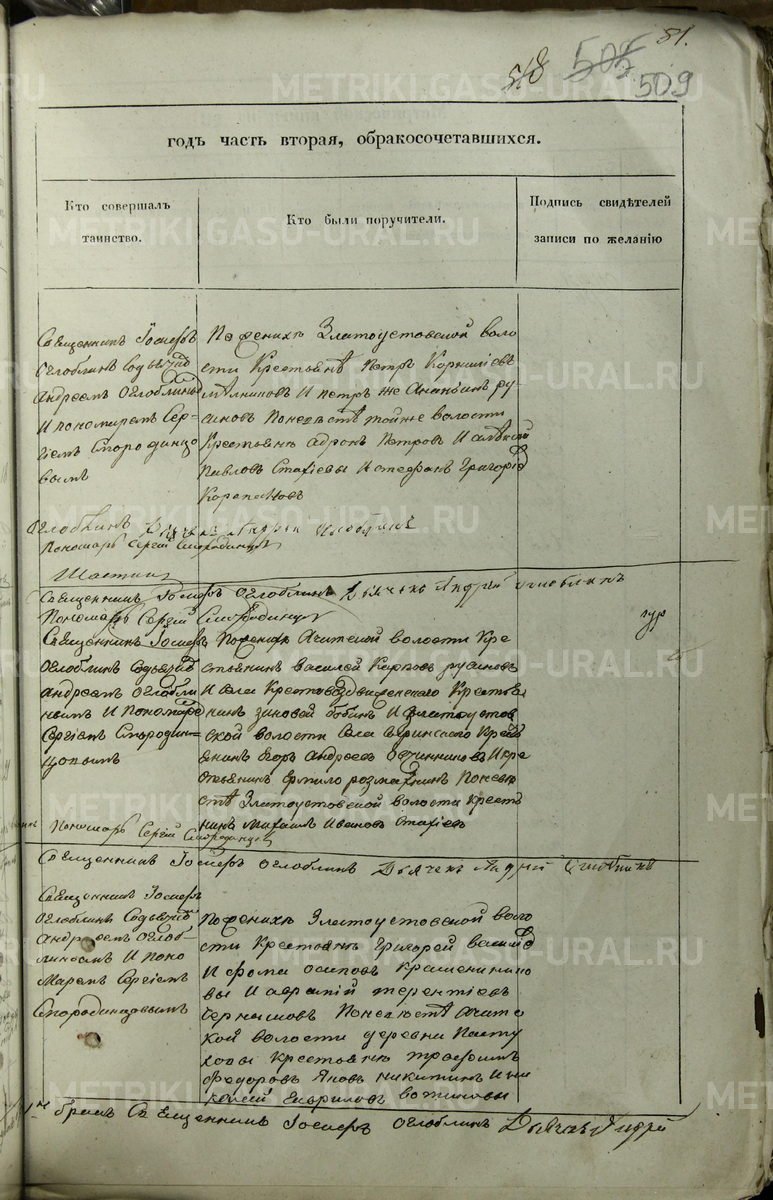 81.
518 505 509
годъ часть вторая, обракосочетавшихся.
Кто совершалъ
таинство.
Кто были поручители.
Подпись свидѣтелей
записи по желанію
Священникъ Іосифъ
Оглоблинъ содьячко
Андреемъ Оглоблины
И пономаремъ Сер-
гіемъ Смородинцо
вымъ
По женихѣ Златоустовской воло
сти Крестьянѣ Петръ Корниловъ
И Петръ же Ананьинъ ру
синовъ Поневѣстѣ тойже волости
Крестьянѣ Адронъ Петровъ И Алексѣй
Павловъ Стахіевы И Стефанъ Григорьевъ
Карепановъ
Оглоблинъ Дьячекъ Андрей Оглоблинъ
Пономарь Сергій Смородинцовъ
Священникъ Іосифъ Оглоблинъ Дьячекъ Андрей Оглоблинъ
Пономарь Сергій Смородинцовъ
Священникъ Іосифъ
Оглоблинъ содьячко
Андреемъ Оглобли
нымъ И Пономаре
Сергіемъ Смородин-
цовымъ
Поженихѣ Ачитской волости Кре
стьянинъ Василей Карповъ русиновъ
И села Крестовоздвиженскаго Крестья
нинъ Зиновей Бобинъ И Златоустов
ской волости Села Крест
янинъ Егоръ Андреевъ Овчинниковъ И кре
стьянинъ Ермило Розмахнинъ Поневѣ
стѣ Златоустовской волости Кресть
нинъ Михаилъ Ивановъ Стахіевъ
Пономарь Сергій Смородинцовъ
Священникъ Іосифъ Оглоблинъ Дьячекъ Андрей Оглоблинъ
Священникъ Іосифъ
Оглоблинъ Содьячко
Андреемъ Оглоб-
линымъ И Поно
Маремъ Сергіемъ
Смородинцовымъ
Поженихѣ Златоустовской воло
сти Крестьянѣ Григорей Васильевъ
И Фома Осиповъ Крашенинико
вы И Терентіевъ
Чернышовъ Поневѣстѣ Ачитс
кой волости деревни Пасту
ховы Крестьянѣ Трофимъ
Федоровъ Яковъ Никитинъ И Ни
колай Гавриловъ
бракъ Священникъ Іосифъ Оглоблинъ Дьячекъ Андрей
METRIKI.GASU-URAL.RU